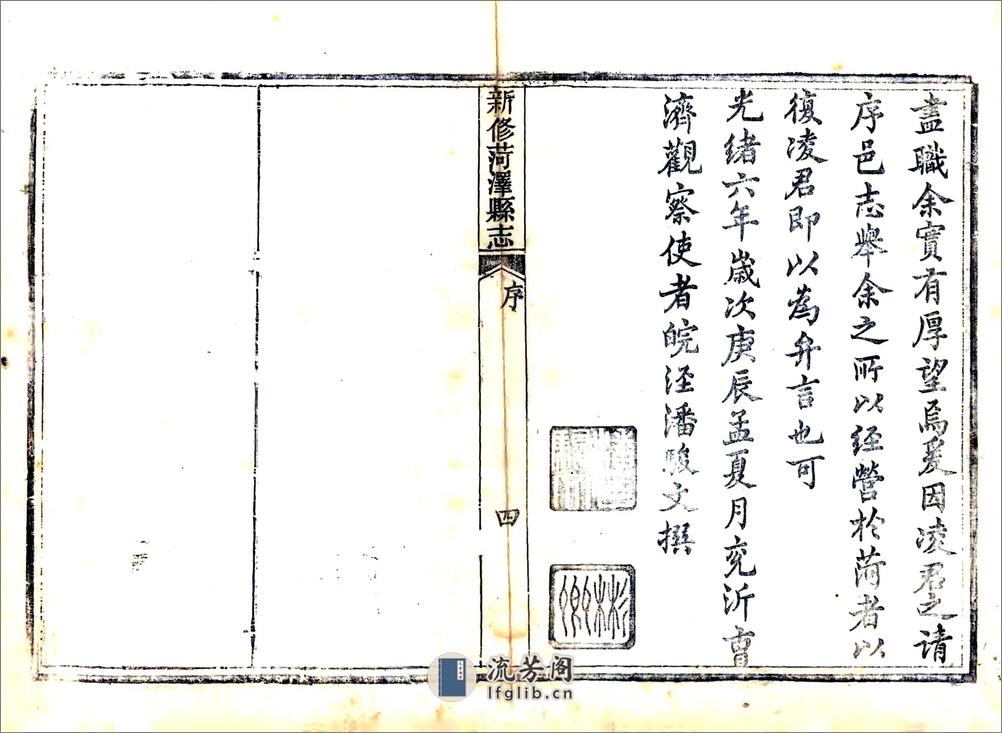 盡職余實有厚望焉爰因凌君之請
序邑志舉余之所以經營於菏者以
復凌君即以為弁言也可
光緒六年歲次庚辰孟夏月兗沂曹
濟觀察使者皖涇潘駿文撰
彬卿
新修菏澤縣志
序
四
流芳阁
lfglib.cn